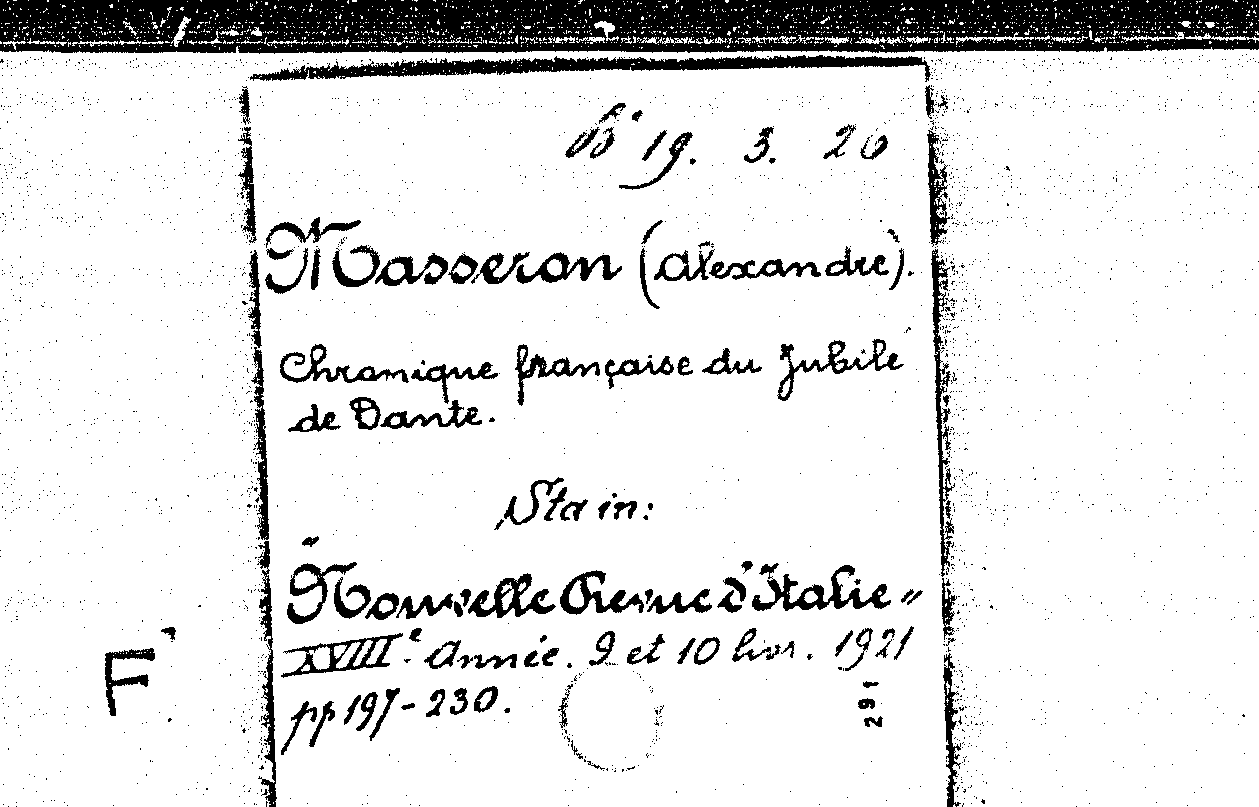 Bª 19. 3. 26
Masseron (Alexandre).
Chronique française du Jubilé
de Dante.
Sta in:
"Nouvelle Revue d'Italie"
XVIIIe. Année. 9 et 10 livr. 1921
pp 197-230.
F
291